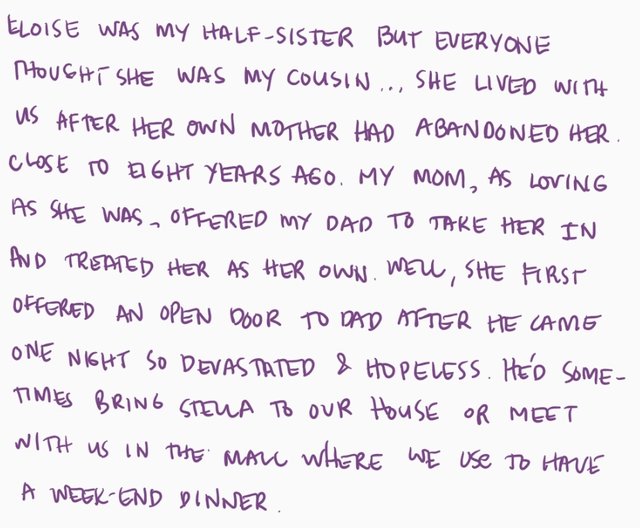 ELOISE WAS MY HALF-SISTER BUT EVERYONE
THOUGHT SHE WAS MY COUSIN... SHE LIVED WITH
US AFTER HER OWN MOTHER HAD ABANDONED HER.
CLOSE TO EIGHT YEARS AGO. MY MOM, AS LOVING
AS SHE WAS, OFFERED MY DAD TO TAKE HER IN
AND TREATED HER AS HER OWN. WELL, SHE FIRST
OFFERED AN OPEN DOOR TO DAD AFTER HE CAME
ONE NIGHT SO DEVASTATED & HOPELESS. HE'D SOME-
TIMES BRING STELLA TO OUR HOUSE OR MEET
WITH US IN THE MALL WHERE WE USE TO HAVE
A WEEK-END DINNER.